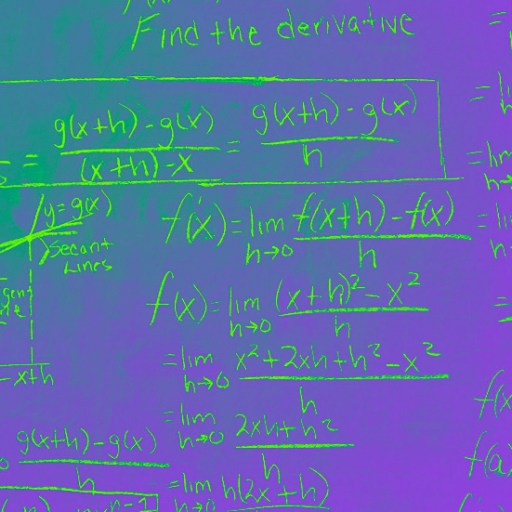 Find the derivative
= g(x+h) - g(x) / (x+h) - x = g(x+h) - g(x) / h
y = g(x)
Secant
Lines
x+h
g(x+h) - g(x) / h
f'(x) = lim h→0 f(x+h) - f(x) / h
f'(x) = lim h→0 (x+h)² - x² / h
= lim h→0 x² + 2xh + h² - x² / h
= lim h→0 2xh + h² / h
= lim h→0 h(2x+h)